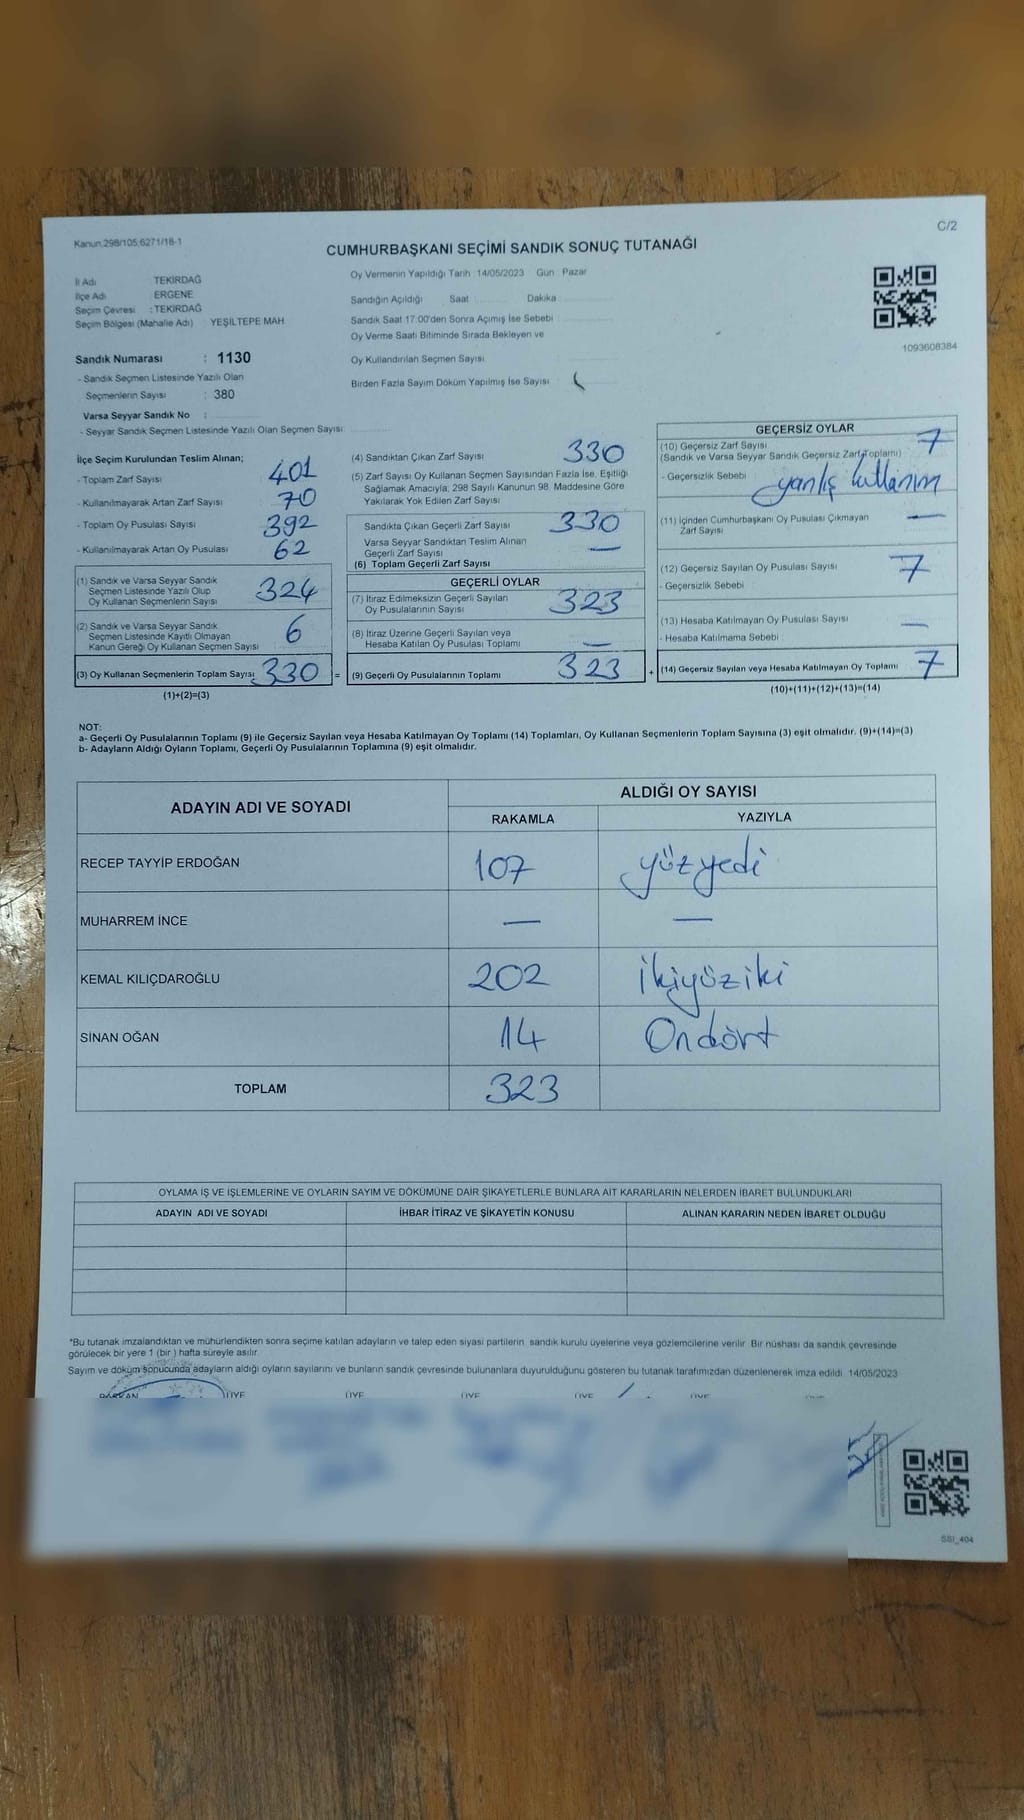 Kanun,298/105,6271/18-1
C/2
CUMHURBAŞKANI SEÇİMİ SANDIK SONUÇ TUTANAĞI
İl Adı TEKİRDAĞ
İlçe Adı ERGENE
Seçim Çevresi : TEKİRDAĞ
Seçim Bölgesi (Mahalle Adı) YEŞİLTEPE MAH
Sandık Numarası : 1130
- Sandık Seçmen Listesinde Yazılı Olan
Seçmenlerin Sayısı : 380
Varsa Seyyar Sandık No :
- Seyyar Sandık Seçmen Listesinde Yazılı Olan Seçmen Sayısı:
Oy Vermenin Yapıldığı Tarih 14/05/2023 Gün Pazar
Sandığın Açıldığı Saat Dakika
Sandık Saat 17:00'den Sonra Açımış İse Sebebi
Oy Verme Saati Bitiminde Sırada Bekleyen ve
Oy Kullandırılan Seçmen Sayısı
Birden Fazla Sayım Döküm Yapılmış İse Sayısı
1093608384
İlçe Seçim Kurulundan Teslim Alınan;
- Toplam Zarf Sayısı 401
- Kullanılmayarak Artan Zarf Sayısı 70
- Toplam Oy Pusulası Sayısı 392
- Kullanılmayarak Artan Oy Pusulası 62
(1) Sandık ve Varsa Seyyar Sandık
Seçmen Listesinde Yazılı Olup
Oy Kullanan Seçmenlerin Sayısı 324
(2) Sandık ve Varsa Seyyar Sandık
Seçmen Listesinde Kayıtlı Olmayan
Kanun Gereği Oy Kullanan Seçmen Sayısı 6
(3) Oy Kullanan Seçmenlerin Toplam Sayısı 330 =
(1)+(2)=(3)
(4) Sandıktan Çıkan Zarf Sayısı 330
(5) Zarf Sayısı Oy Kullanan Seçmen Sayısından Fazla İse, Eşitliği
Sağlamak Amacıyla, 298 Sayılı Kanunun 98. Maddesine Göre
Yakılarak Yok Edilen Zarf Sayısı
Sandıkta Çıkan Geçerli Zarf Sayısı 330
Varsa Seyyar Sandıktan Teslim Alınan
Geçerli Zarf Sayısı —
(6) Toplam Geçerli Zarf Sayısı
GEÇERLİ OYLAR
(7) İtiraz Edilmeksizin Geçerli Sayılan
Oy Pusulalarının Sayısı 323
(8) İtiraz Üzerine Geçerli Sayılan veya
Hesaba Katılan Oy Pusulası Toplamı —
(9) Geçerli Oy Pusulalarının Toplamı 323 +
GEÇERSİZ OYLAR
(10) Geçersiz Zarf Sayısı 7
(Sandık ve Varsa Seyyar Sandık Geçersiz Zarf Toplamı)
- Geçersizlik Sebebi yanlış kullanım
(11) İçinden Cumhurbaşkanı Oy Pusulası Çıkmayan —
Zarf Sayısı
(12) Geçersiz Sayılan Oy Pusulası Sayısı 7
- Geçersizlik Sebebi
(13) Hesaba Katılmayan Oy Pusulası Sayısı —
- Hesaba Katılmama Sebebi
(14) Geçersiz Sayılan veya Hesaba Katılmayan Oy Toplamı 7
(10)+(11)+(12)+(13)=(14)
NOT:
a- Geçerli Oy Pusulalarının Toplamı (9) ile Geçersiz Sayılan veya Hesaba Katılmayan Oy Toplamı (14) Toplamları, Oy Kullanan Seçmenlerin Toplam Sayısına (3) eşit olmalıdır. (9)+(14)=(3)
b- Adayların Aldığı Oyların Toplamı, Geçerli Oy Pusulalarının Toplamına (9) eşit olmalıdır.
ADAYIN ADI VE SOYADI ALDIĞI OY SAYISI
RAKAMLA YAZIYLA
RECEP TAYYİP ERDOĞAN 107 yüzyedi
MUHARREM İNCE — —
KEMAL KILIÇDAROĞLU 202 ikiyüziki
SİNAN OĞAN 14 Ondört
TOPLAM 323
OYLAMA İŞ VE İŞLEMLERİNE VE OYLARIN SAYIM VE DÖKÜMÜNE DAİR ŞİKAYETLERLE BUNLARA AİT KARARLARIN NELERDEN İBARET BULUNDUKLARI
ADAYIN ADI VE SOYADI İHBAR İTİRAZ VE ŞİKAYETİN KONUSU ALINAN KARARIN NEDEN İBARET OLDUĞU
*Bu tutanak imzalandıktan ve mühürlendikten sonra seçime katılan adayların ve talep eden siyasi partilerin sandık kurulu üyelerine veya gözlemcilerine verilir. Bir nüshası da sandık çevresinde
görülecek bir yere 1 (bir) hafta süreyle asılır.
Sayım ve döküm sonucunda adayların aldığı oyların sayılarını ve bunların sandık çevresinde bulunanlara duyurulduğunu gösteren bu tutanak tarafımızdan düzenlenerek imza edildi. 14/05/2023
BAŞKAN ÜYE ÜYE ÜYE ÜYE ÜYE
SSI_404